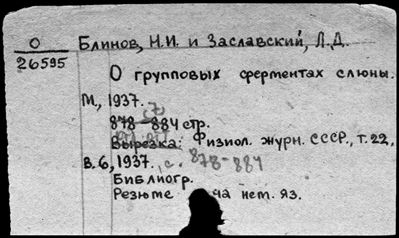 О
26595
Блинов, Н.И. и Заславский, Л.Д.
О групповых ферментах слюны.
М., 1937.
(7)
878-884 стр.
Вырезка: Физиол. журн. СССР, т. 22,
в. 6, 1937. с. 878-884
Библиогр.
Резюме на нем. яз.